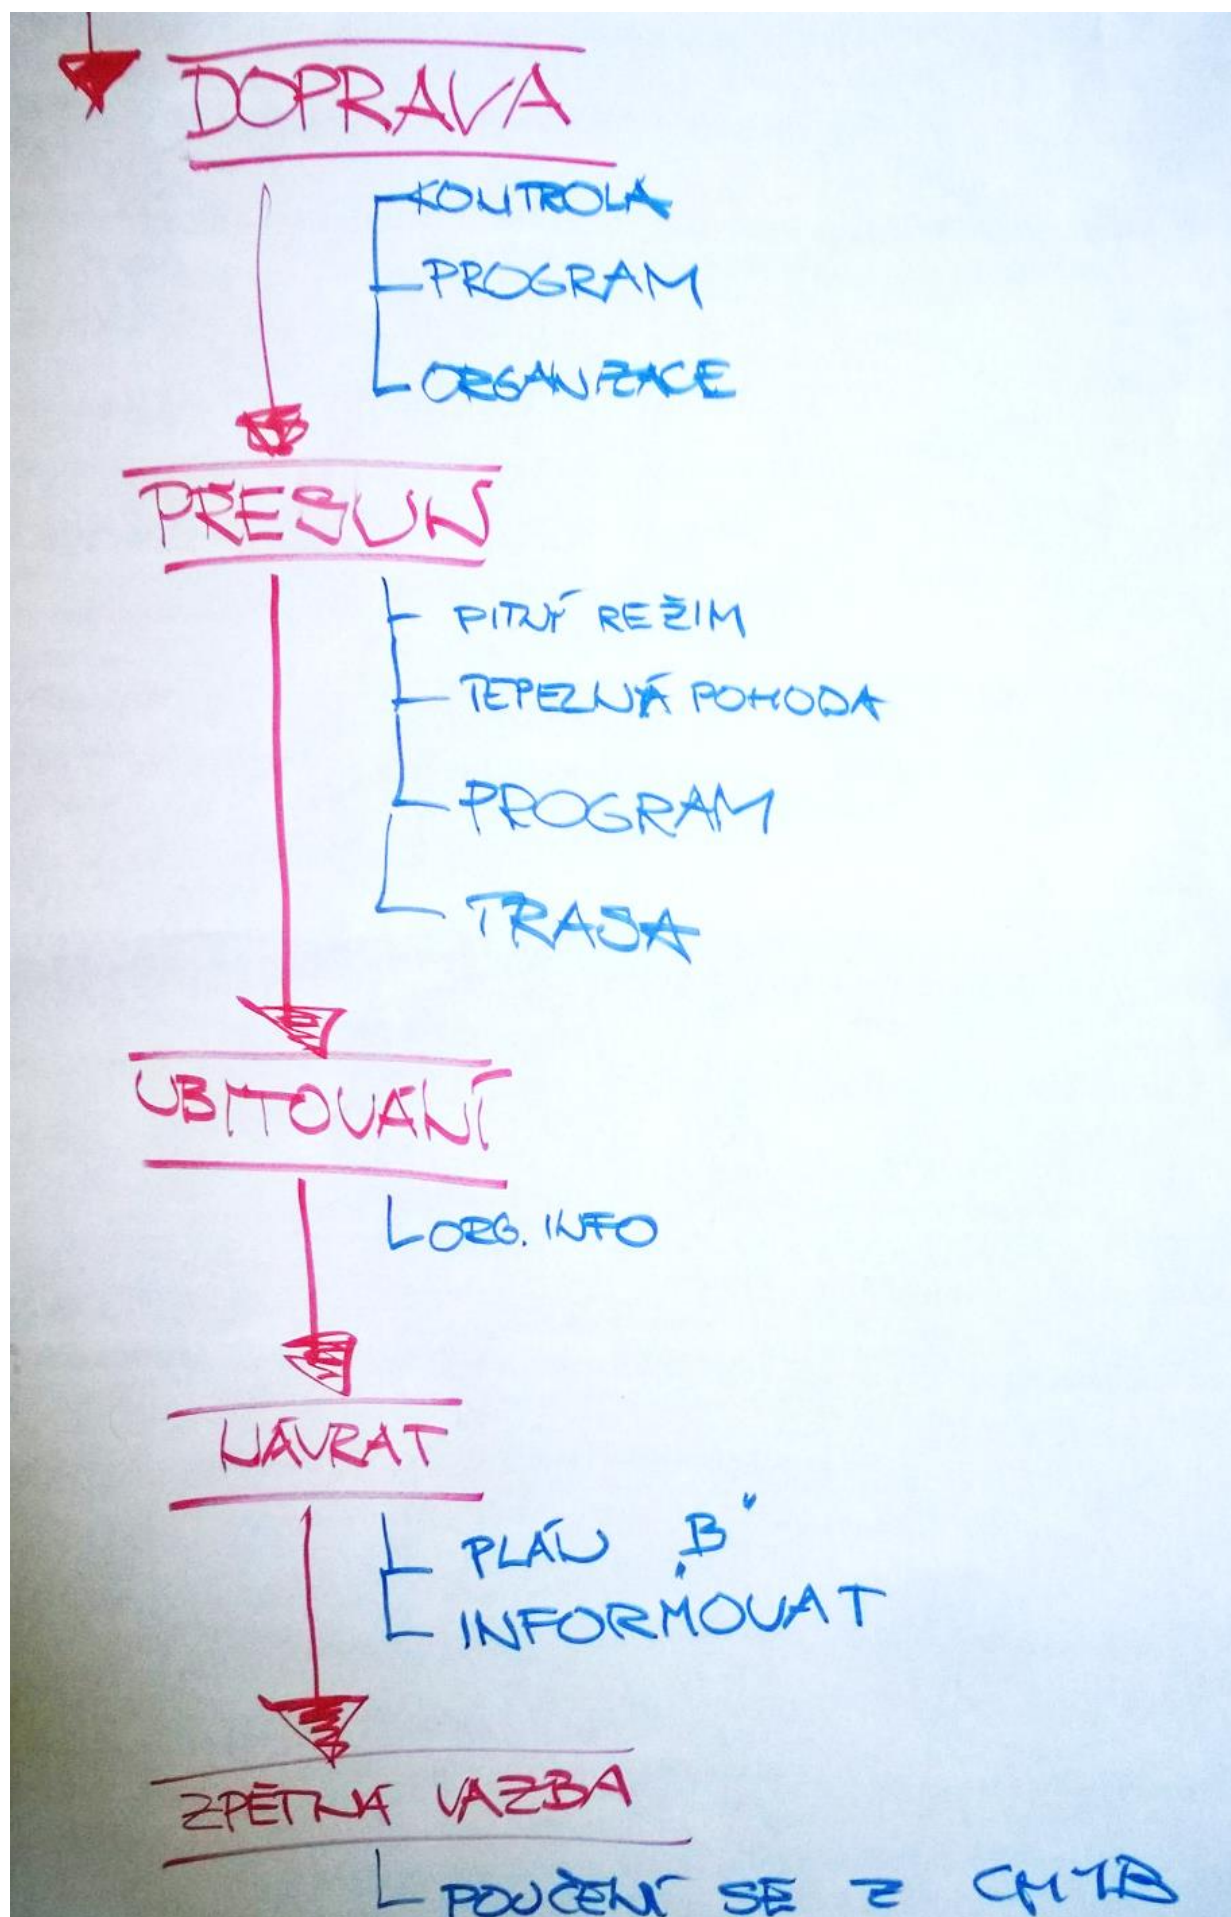 DOPRAVA
KONTROLA
PROGRAM
ORGANIZACE
PŘESUN
PITNÝ REŽIM
TEPELNÁ POHODA
PROGRAM
TRASA
UBITOVÁNÍ
ORG. INFO
NÁVRAT
PLÁN „B“
INFORMOVAT
ZPĚTNÁ VAZBA
POUČENÍ SE Z CHYB